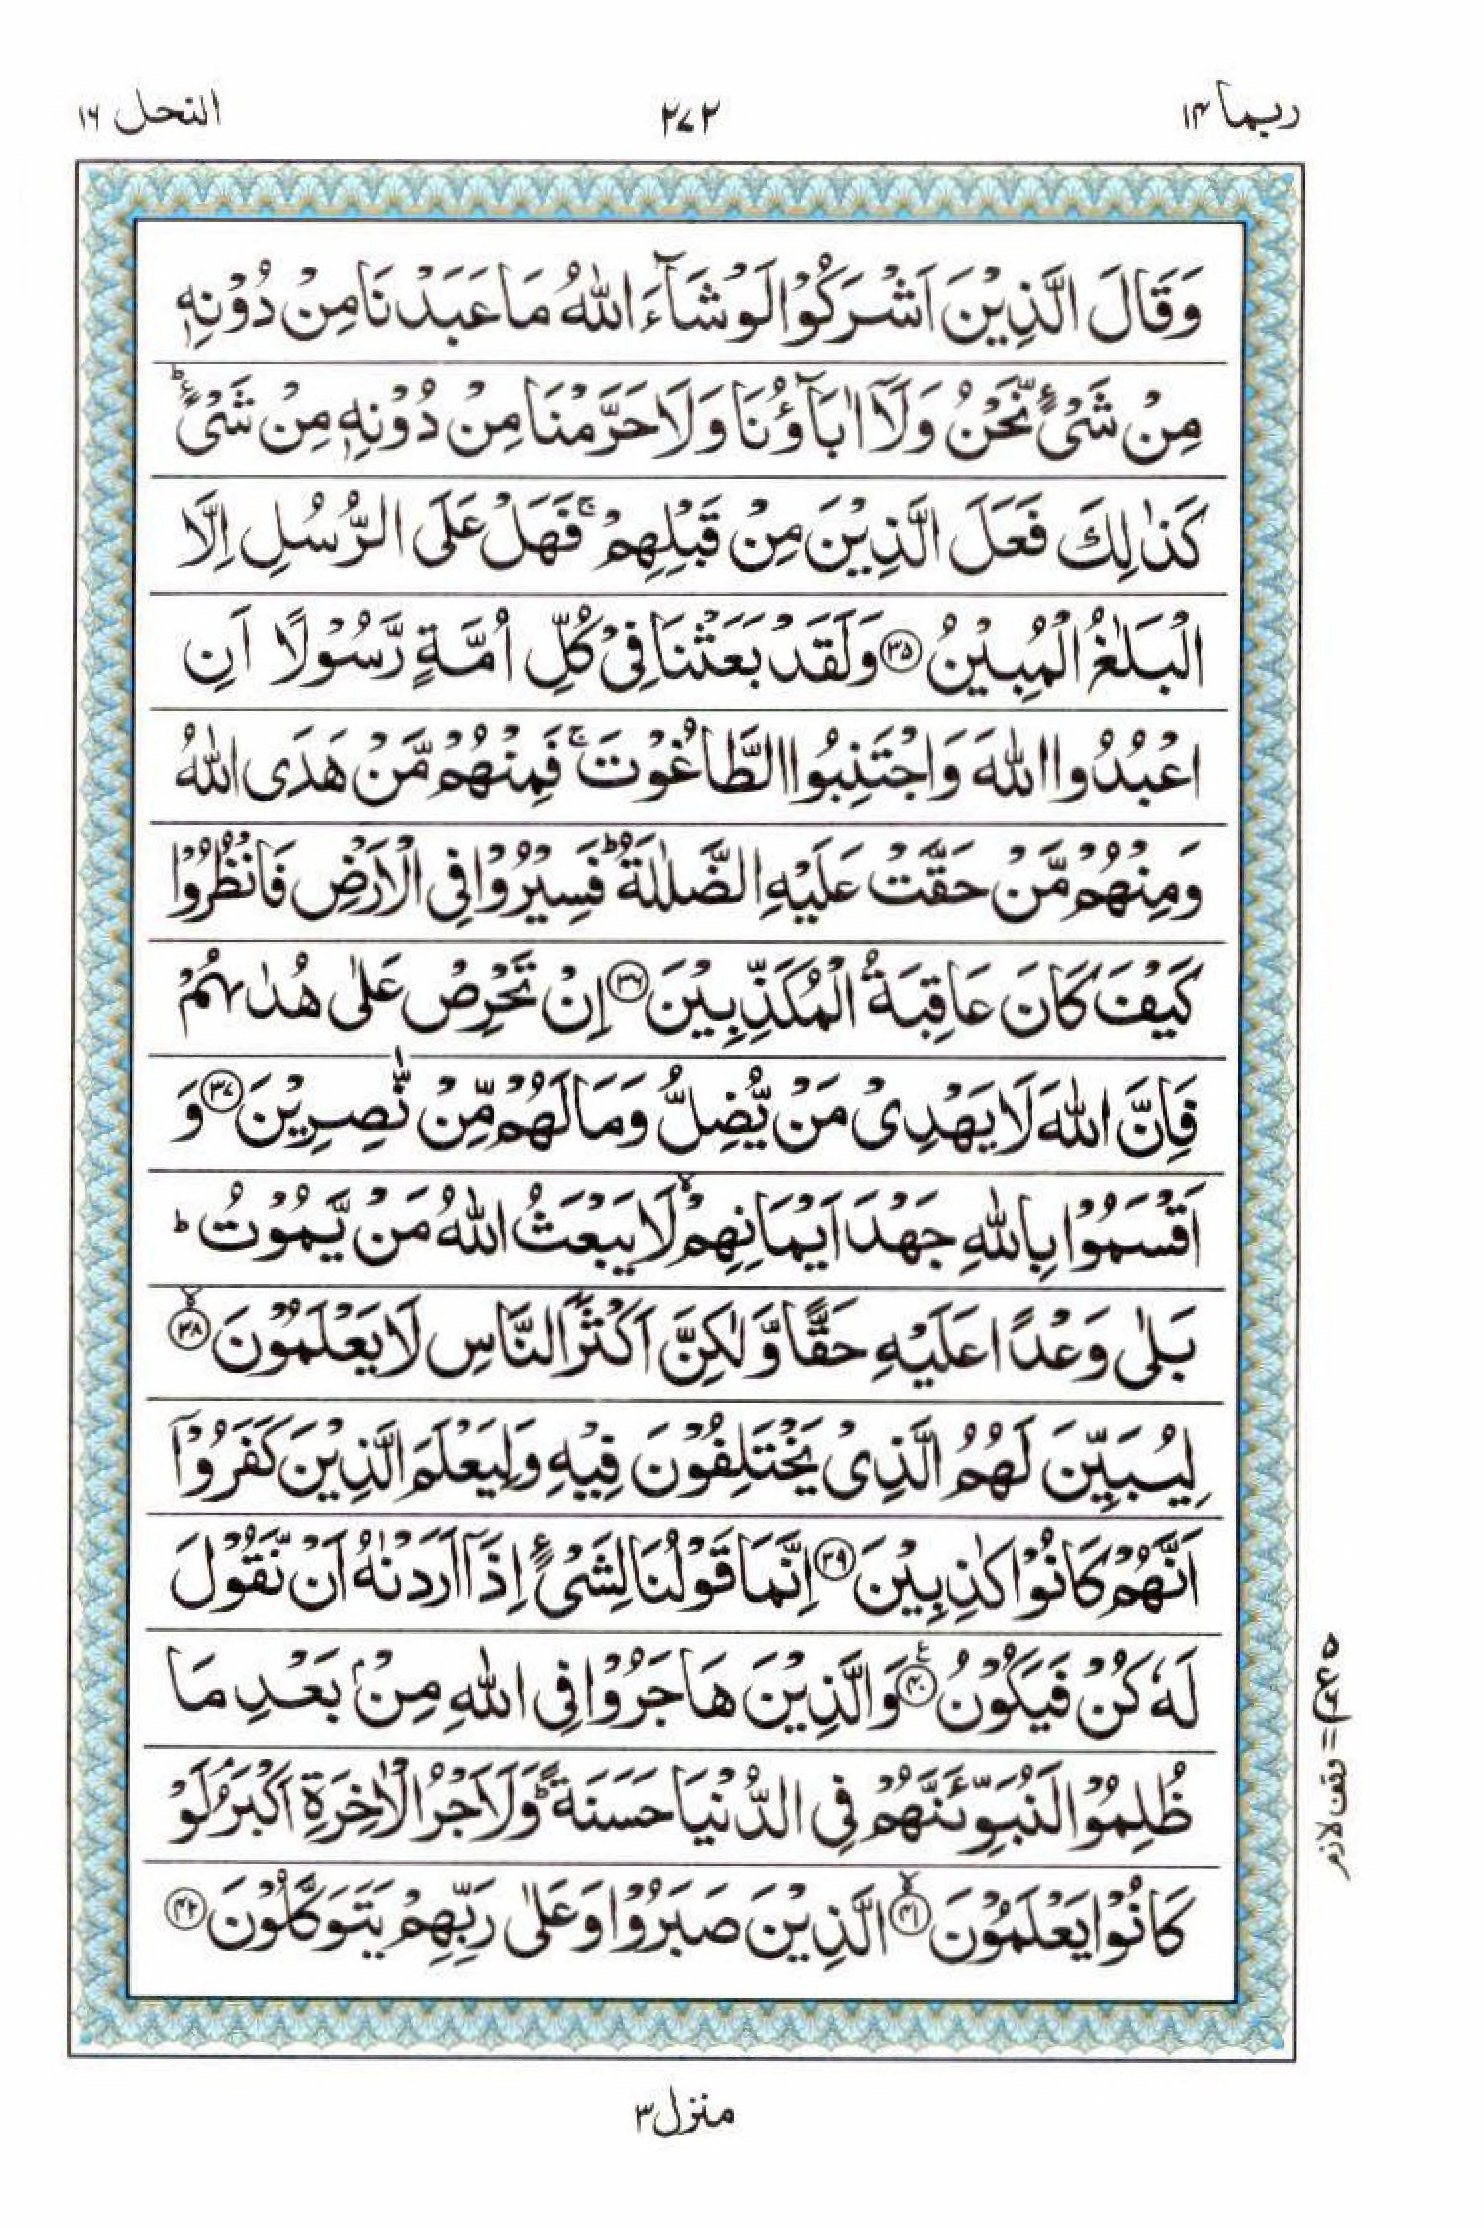 ربما ١٤
٢٧٢
النحل ١٦
وَقَالَ الَّذِيْنَ اَشْرَكُوْا لَوْ شَآءَ اللّٰهُ مَا عَبَدْنَا مِنْ دُوْنِهٖ
مِنْ شَىْءٍ نَّحْنُ وَلَاۤ اٰبَآؤُنَا وَلَا حَرَّمْنَا مِنْ دُوْنِهٖ مِنْ شَىْءٍ ؕ
كَذٰلِكَ فَعَلَ الَّذِيْنَ مِنْ قَبْلِهِمْ ۚ فَهَلْ عَلَى الرُّسُلِ اِلَّا
الْبَلٰغُ الْمُبِيْنُ ﴿٣٥﴾ وَلَقَدْ بَعَثْنَا فِىْ كُلِّ اُمَّةٍ رَّسُوْلًا اَنِ
اعْبُدُوا اللّٰهَ وَاجْتَنِبُوا الطَّاغُوْتَ ۚ فَمِنْهُمْ مَّنْ هَدَى اللّٰهُ
وَمِنْهُمْ مَّنْ حَقَّتْ عَلَيْهِ الضَّلٰلَةُ ؕ فَسِيْرُوْا فِى الْاَرْضِ فَانْظُرُوْا
كَيْفَ كَانَ عَاقِبَةُ الْمُكَذِّبِيْنَ ﴿٣٦﴾ اِنْ تَحْرِصْ عَلٰى هُدٰىهُمْ
فَاِنَّ اللّٰهَ لَا يَهْدِىْ مَنْ يُّضِلُّ وَمَا لَهُمْ مِّنْ نّٰصِرِيْنَ ﴿٣٧﴾ وَ
اَقْسَمُوْا بِاللّٰهِ جَهْدَ اَيْمَانِهِمْ ۙ لَا يَبْعَثُ اللّٰهُ مَنْ يَّمُوْتُ ؕ
بَلٰى وَعْدًا عَلَيْهِ حَقًّا وَّلٰكِنَّ اَكْثَرَ النَّاسِ لَا يَعْلَمُوْنَ ۙ﴿٣٨﴾
لِيُبَيِّنَ لَهُمُ الَّذِىْ يَخْتَلِفُوْنَ فِيْهِ وَلِيَعْلَمَ الَّذِيْنَ كَفَرُوْۤا
اَنَّهُمْ كَانُوْا كٰذِبِيْنَ ﴿٣٩﴾ اِنَّمَا قَوْلُنَا لِشَىْءٍ اِذَاۤ اَرَدْنٰهُ اَنْ نَّقُوْلَ
لَهٗ كُنْ فَيَكُوْنُ ﴿٤٠﴾ وَالَّذِيْنَ هَاجَرُوْا فِى اللّٰهِ مِنْۢ بَعْدِ مَا
ظُلِمُوْا لَنُبَوِّئَنَّهُمْ فِى الدُّنْيَا حَسَنَةً ؕ وَلَاَجْرُ الْاٰخِرَةِ اَكْبَرُ ۘ لَوْ
كَانُوْا يَعْلَمُوْنَ ۙ﴿٤١﴾ الَّذِيْنَ صَبَرُوْا وَعَلٰى رَبِّهِمْ يَتَوَكَّلُوْنَ ﴿٤٢﴾
وقف لازم
منزل ٣